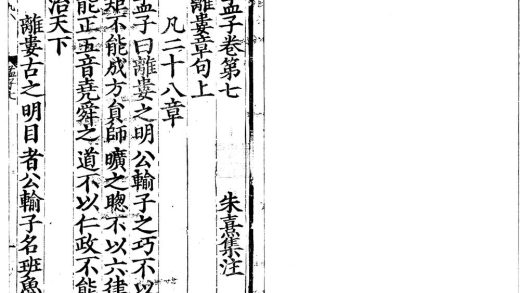 孟子卷第七
朱熹集注
離婁章句上
凡二十八章
孟子曰離婁之明公輸子之巧不以
矩不能成方員師曠之聰不以六律
能正五音堯舜之道不以仁政不能
治天下
離婁古之明目者公輸子名班魯